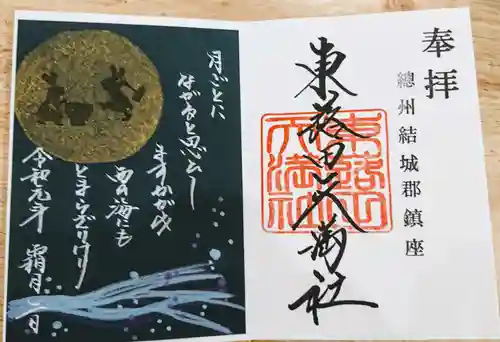 奉拝
總州結城郡鎮座
東蕗田天満社
月ごとに
ながると思ひし
ますかがみ
西の海にも
とまらざりけり
令和元年 霜月一日